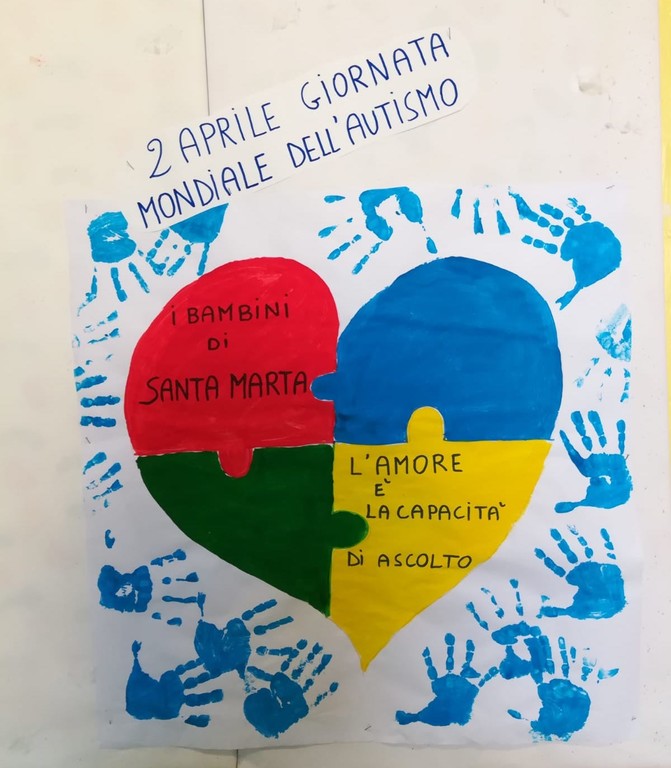 2 APRILE GIORNATA
MONDIALE DELL'AUTISMO
i BAMBiNi
Di
SANTA MARTA
L'AMORE
È
LA CAPACITA'
Di ASCOLTO